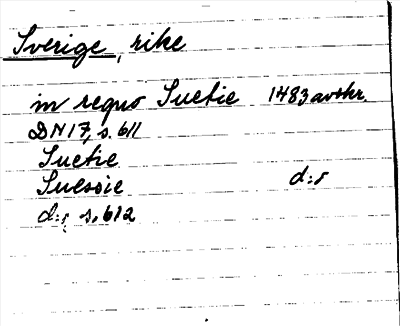 Sverige, rike
in regno Suetie 1483 avskr.
DN 17, s. 611
Suetie
Suesoie d:o
d:o s. 612